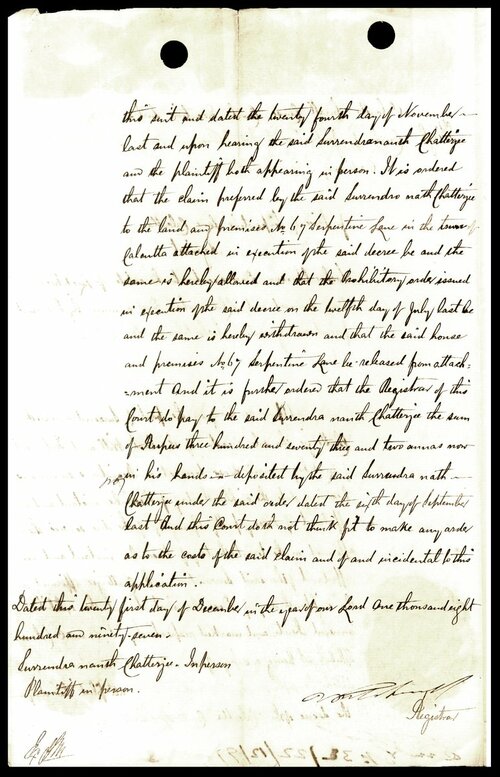 this suit and dated the twenty fourth day of November
last and upon hearing the said Surrendranauth Chatterjee
and the plaintiff both appearing in person. It is ordered
that the claim preferred by the said Surrendro nath Chatterjee
to the land and premises No 67 Serpentine Lane in the town of
Calcutta attached in execution of the said decree be and the
same is hereby allowed and that the Prohibitory order issued
in execution of the said decree on the twelfth day of July last be
and the same is hereby withdrawn and that the said house
and premises No 67 Serpentine Lane be released from attach=
=ment And it is further ordered that the Registrar of this
Court do pay to the said Surrendra nauth Chatterjee the sum
of Rupees three hundred and seventy three and two annas now
in his hands deposited by the said Surrendra nath
Chatterjee under the said order dated the sixth day of September
last And this Court doth not think fit to make any order
as to the costs of the said claim and of and incidental to this
application.
Dated this twenty first day of December in the year of our Lord One thousand eight
hundred and ninety-seven.
Surrendra nauth Chatterjee. In person
Plaintiff in person.
Registrar